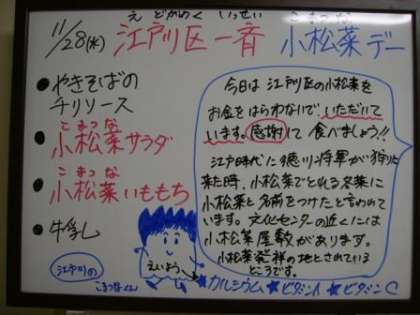 えどがわくいっせい こまつな
11/28(水) 江戸川区一斉 小松菜デー
●やきそばの
チリソース
こまつな
●小松菜サラダ
こまつな
●小松菜いももち
●牛乳
今日は江戸川区の小松菜を
お金をはらわないで、いただいて
います。感謝して食べましょう!!
江戸時代に徳川将軍が狩りに
来た時、小松菜でとれる名菜に
小松菜と名前をつけたと言われて
います。文化センターの近くには
小松菜屋敷があります。
小松菜発祥の地とされている
ところです。
えいよう
江戸川の
こまつなくん
★カルシウム★ビタミンA★ビタミンC